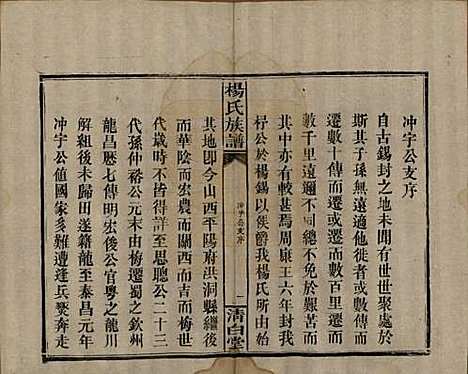 冲宇公支序
自古錫封之地未聞有世世聚處於
斯其子孫無遠適他徙者或數傳而
遷數十傳而遷而數百里遷而
數千里遠邇不同總不免於艱苦而
其中亦有較甚焉周康王六年封我
杼公於楊錫以侯爵我楊氏所自始
楊氏族譜
冲宇公支序
一
清白堂
其地卽今山西平陽府洪洞縣繼後
而華陰而宏農而關西而吉而梅
代歲時不皆得詳至思聰公二十三
代孫仲裕公元末由梅遷蜀之欽州
龍昌歷七傳明宏後公官粵之龍川
解組後未歸田遂籍龍至泰昌元年
冲宇公値國家多難遭逢兵燹奔走